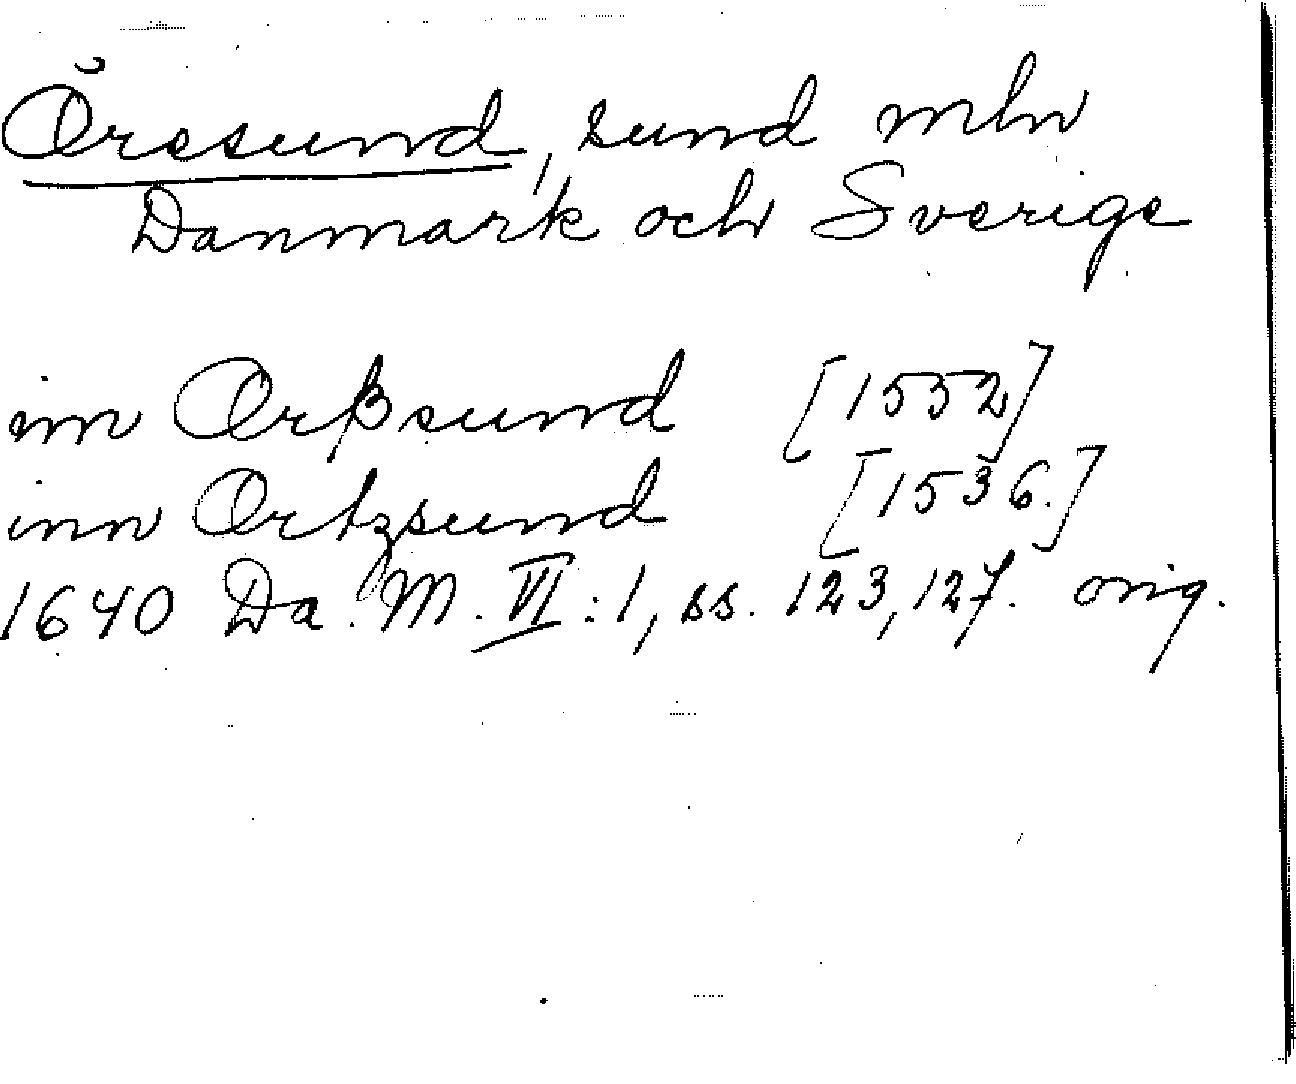 Öresund, sund mln
Danmark och Sverige
im Orßsund [1532]
inn Ortzsund [1536.]
1640 Da. M. VI:1, ss. 123, 127. orig.